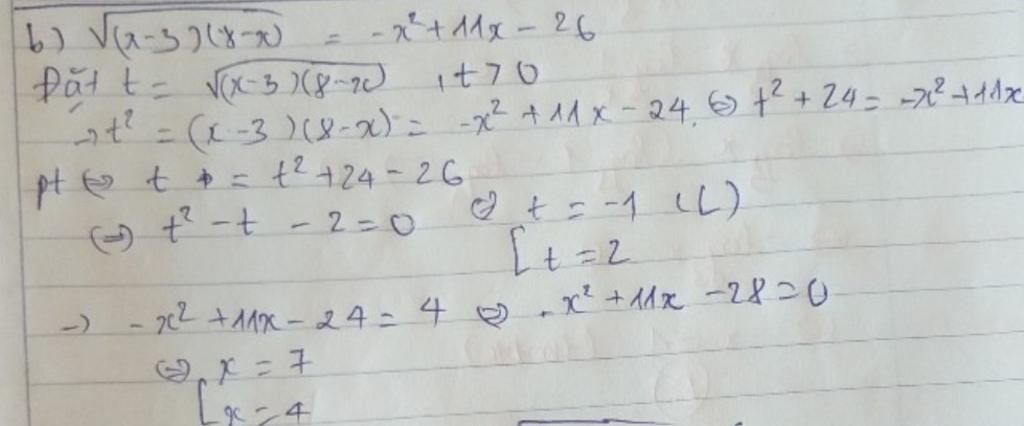 b) √(x-3)(8-x) = -x² + 11x - 26
Đặt t = √(x-3)(8-x) , t > 0
→ t² = (x-3)(8-x) = -x² + 11x - 24. ⇔ t² + 24 = -x² + 11x
pt ⇔ t = t² + 24 - 26
⇔ t² - t - 2 = 0 ⇔ [ t = -1 (L)
t = 2
→ -x² + 11x - 24 = 4 ⇔ -x² + 11x - 28 = 0
⇔ [ x = 7
x = 4